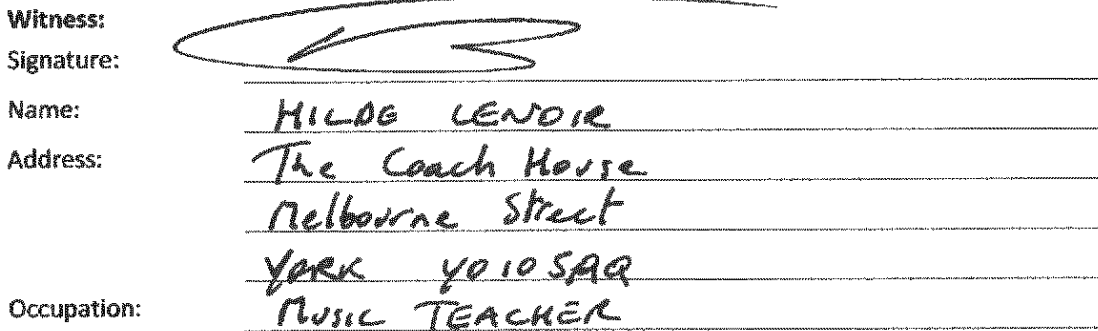 Witness:
Signature:
Name: HILDE LENOIR
Address: The Coach House
Melbourne Street
YORK YO10 5AQ
Occupation: MUSIC TEACHER